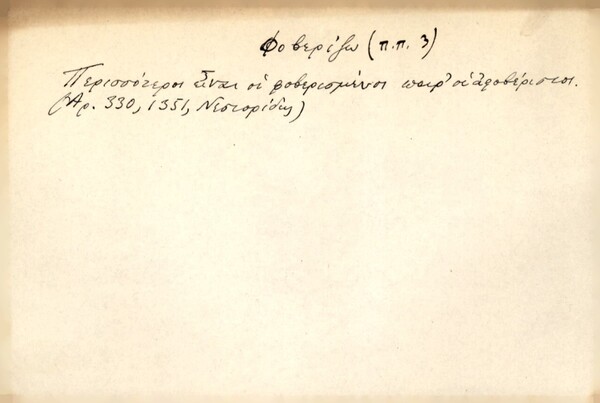 Φοβερίζω (π.π. 3)
Περισσότεροι εἶναι οἱ φοβερισμένοι παρ' οἱ ἀφοβέριστοι.
(Ἀρ. 330, 1351, Νεστορίδης)